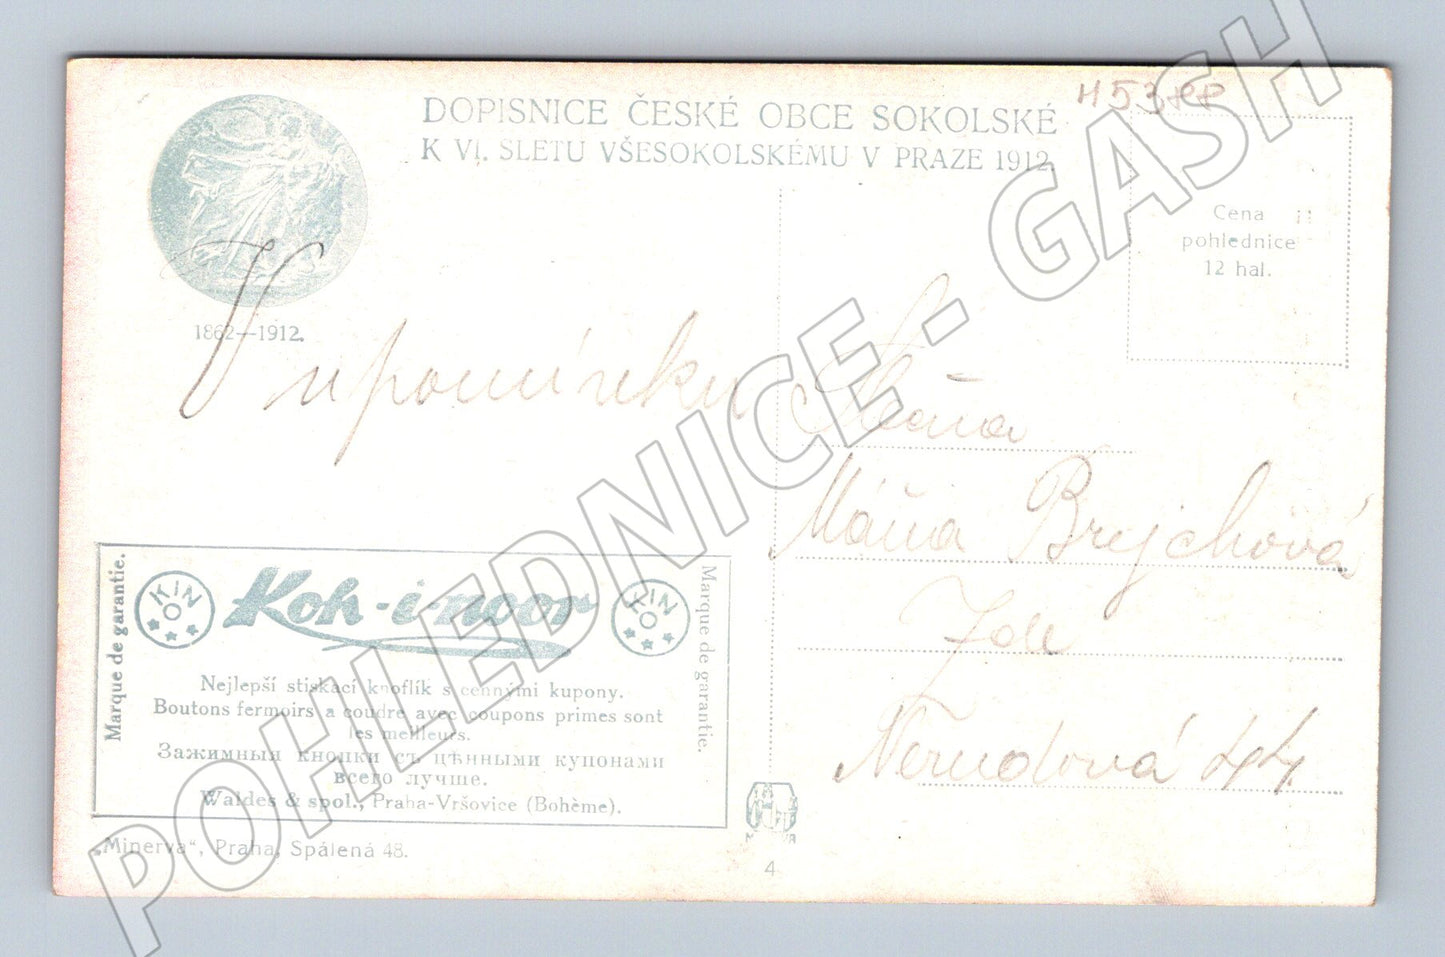 DOPISNICE ČESKÉ OBCE SOKOLSKÉ
K VI. SLETU VŠESOKOLSKÉMU V PRAZE 1912.
Cena
pohlednice
12 hal.
1862—1912.
V upomínku
Slečna
Máňa Brychová
Zde
Nerudová 44.
Marque de garantie.
KIN
Koh-i-noor
KIN
Marque de garantie.
Nejlepší stiskací knoflík s cennými kupony.
Boutons fermoirs a coudre avec coupons primes sont
les meilleurs.
Зажимныя кнопки съ цѣнными купонами
всего лучше.
Waldes & spol., Praha-Vršovice (Bohème).
„Minerva“, Praha, Spálená 48.
4
POHLEDNICE - GASH